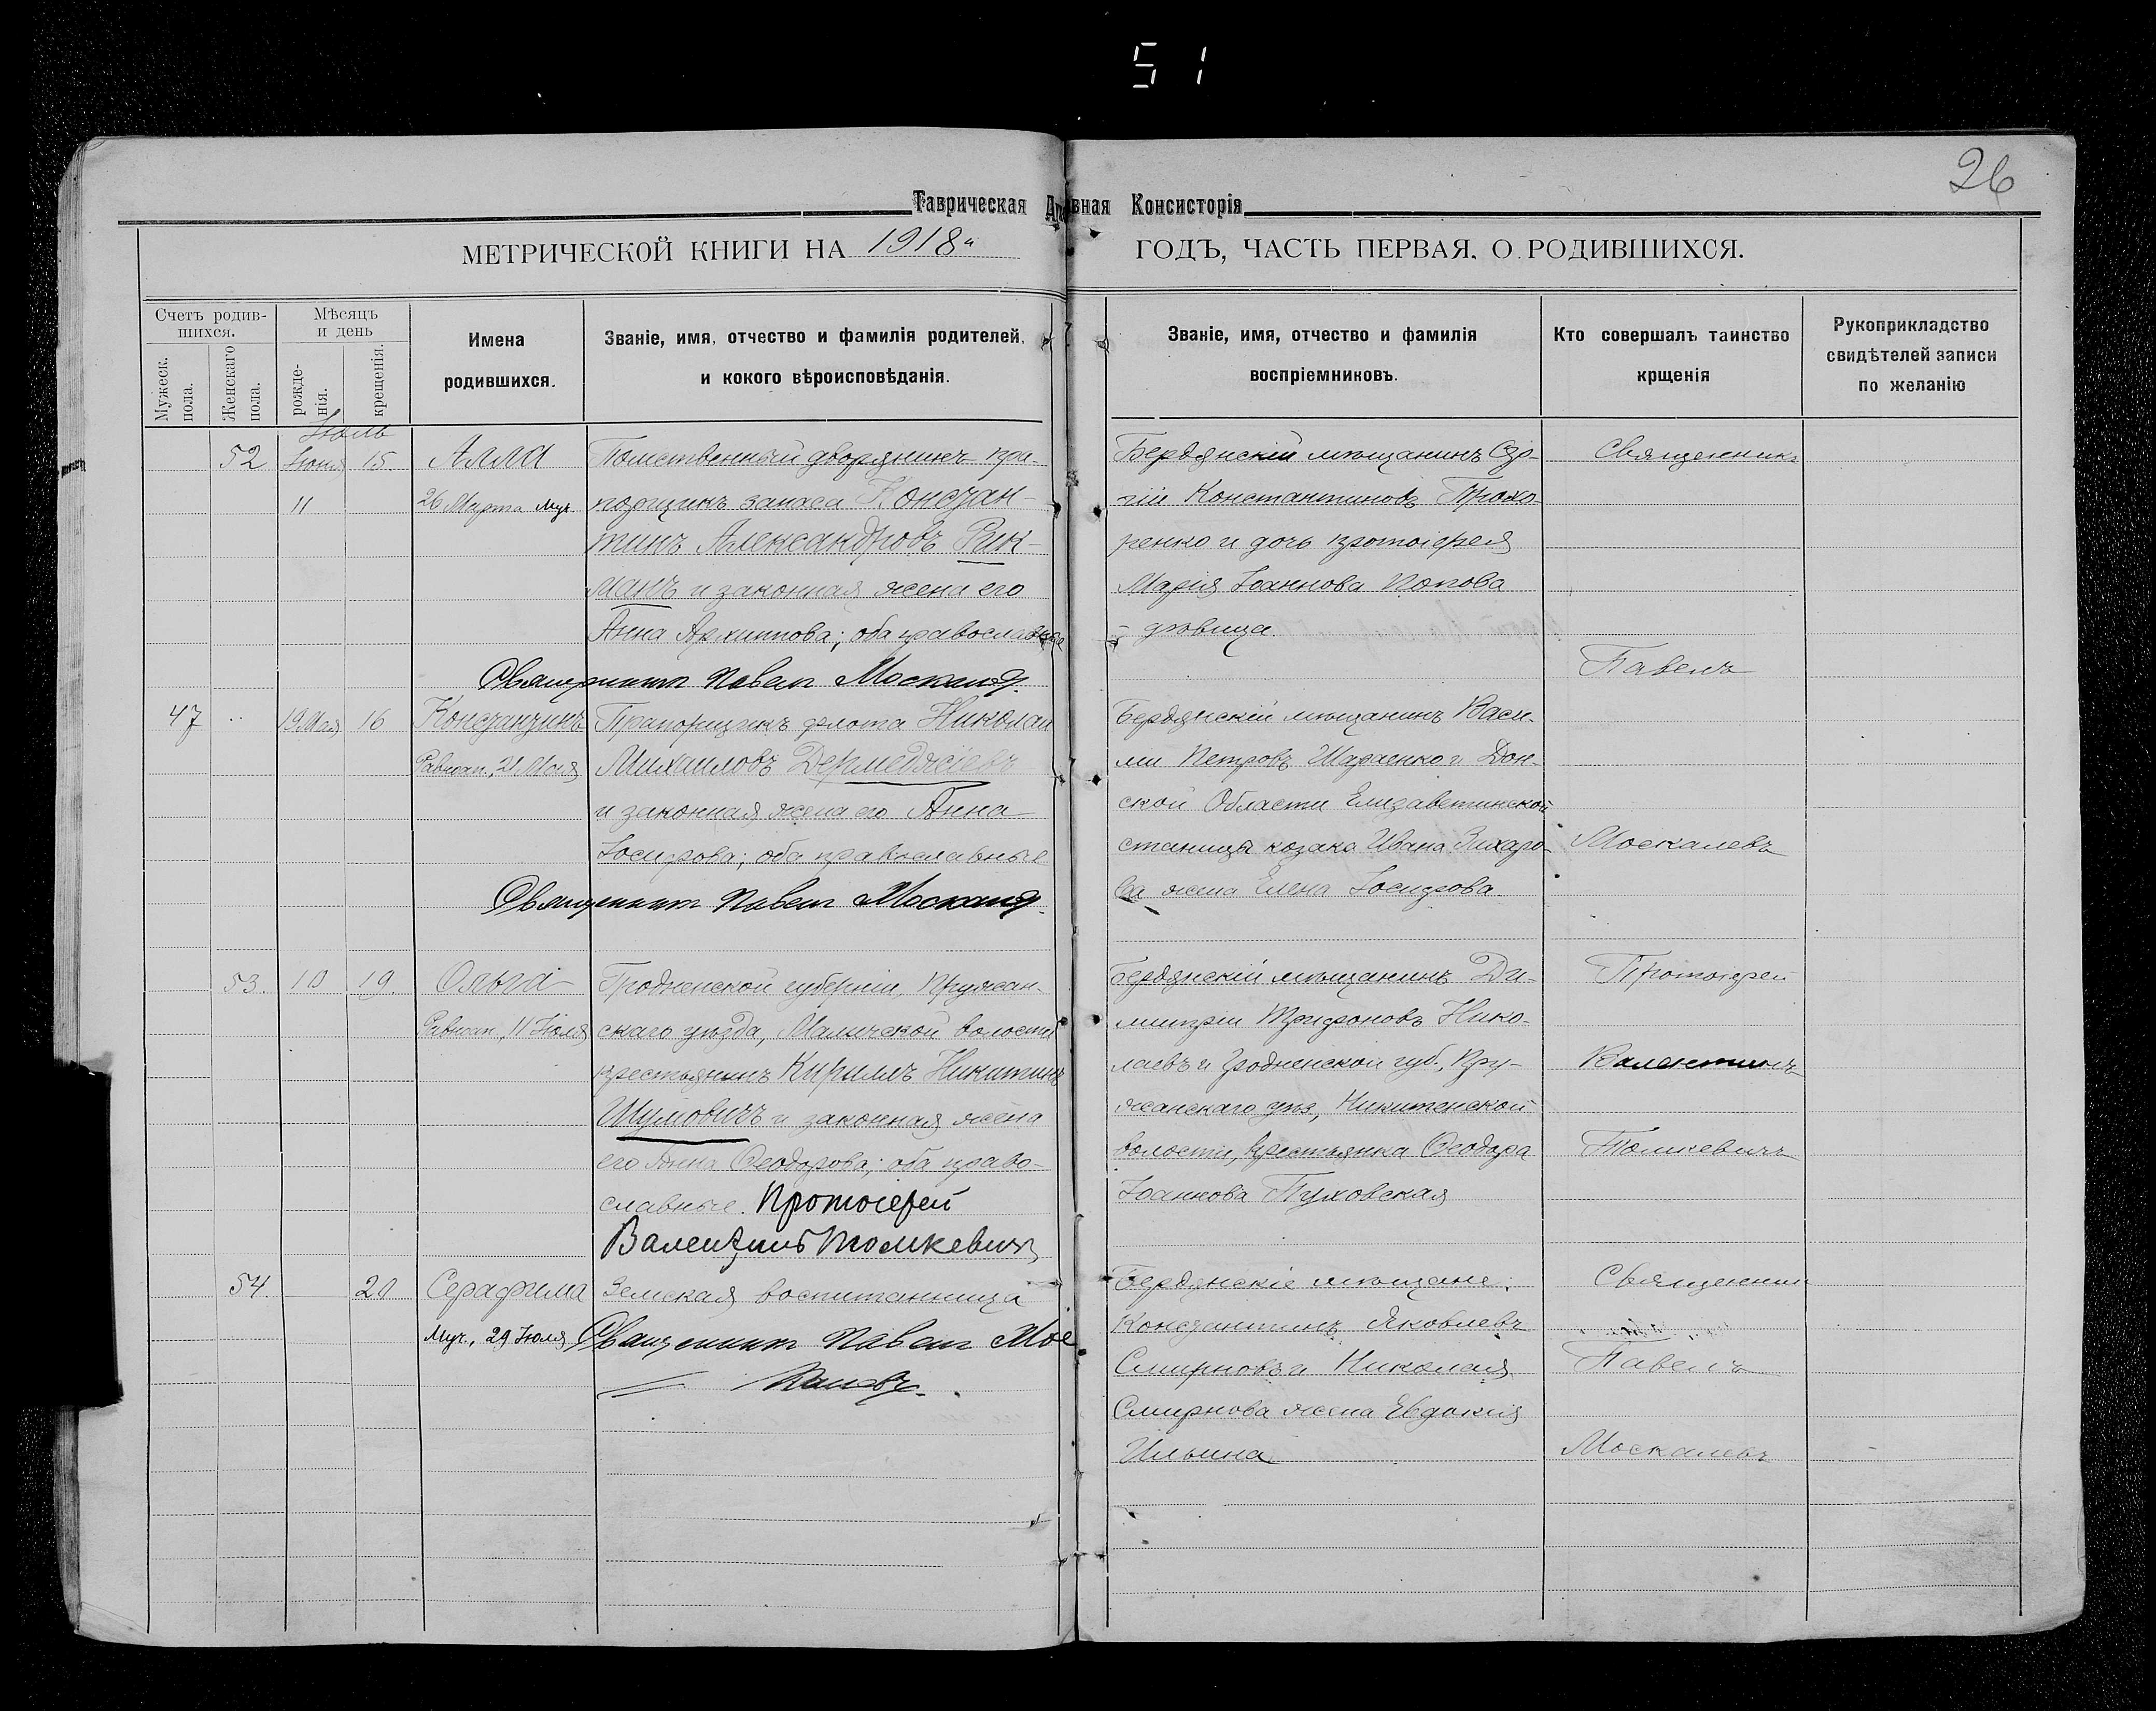 51
26
Таврическая Д вная Консисторія
МЕТРИЧЕСКОЙ КНИГИ НА 1918й ГОДЪ, ЧАСТЬ ПЕРВАЯ, О РОДИВШИХСЯ.
Счетъ родив-
шихся.
Мужеск. пола.
Женскаго пола.
Мѣсяцъ
и день
рожде-
нія.
крещенія.
Имена
родившихся.
Званіе, имя, отчество и фамилія родителей,
и кокого вѣроисповѣданія.
Званіе, имя, отчество и фамилія
воспріемниковъ.
Кто совершалъ таинство
крщенія
Рукоприкладство
свидѣтелей записи
по желанію
Іюль
52 Іюня 15 Алла
11 26 Марта муч.
Потомственный дворянинъ пра-
порщикъ запаса Констан-
тинъ Александровъ Рик-
манъ и законная жена его
Анна Архиппова; оба православные
Священникъ Павелъ
Бердянскій мѣщанинъ
гій Константиновъ Прохо-
ренко и дочь протоіерея
Марія Іоаннова Попова
- дѣвица
Священникъ
Павелъ
Москалевъ
47 " 19 Мая 16 Константинъ
Равноап., 21 Мая
Прапорщикъ флота Николай
Михаиловъ Дермеджіевъ
и законная жена его Анна
Іосифова; оба православные
Священникъ Павелъ
Бердянскій мѣщанинъ Васи-
лій Петровъ и Дон-
ской Области Елизаветинской
станицы козака Ивана Захаро-
ва жена Елена Іосифова.
53. 10 19. Ольга
Равноап., 11 Іюля
Гродненской губерніи, Пружан-
скаго уѣзда, волости
крестьянинъ Кириллъ Никитинъ
Шумовичъ и законная жена
его Анна Ѳеодорова; оба право-
славные. Протоіерей
Валентинъ Томкевичъ
Бердянскій мѣщанинъ Ди-
митрій Трифоновъ Нико-
лаевъ и Гродненской губ., Пру-
жанскаго уѣз., волости, крестьянка Ѳеодора
Іоаннова Пуховская
Протоіерей
Валентинъ
Томкевичъ
54. 20 Серафима
Муч., 29 Іюля
Земская воспитанница
Священникъ Павелъ Мос
калевъ.
Бердянскіе мѣщане:
Константинъ Яковлевъ
Смирновъ и Николая
Смирнова жена Евдокія
Ильина
Священникъ
Павелъ
Москалевъ